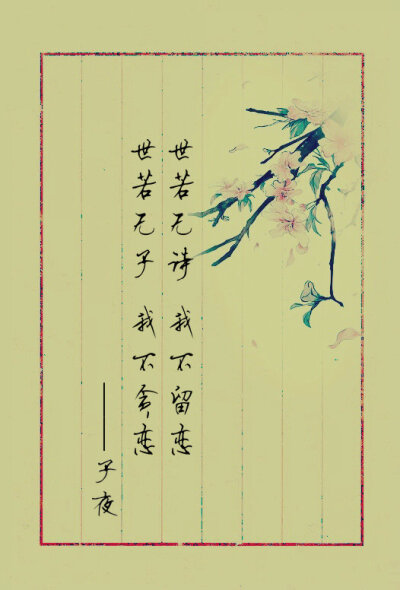 世若无诗 我不留恋
世若无子 我不贪恋
——子夜